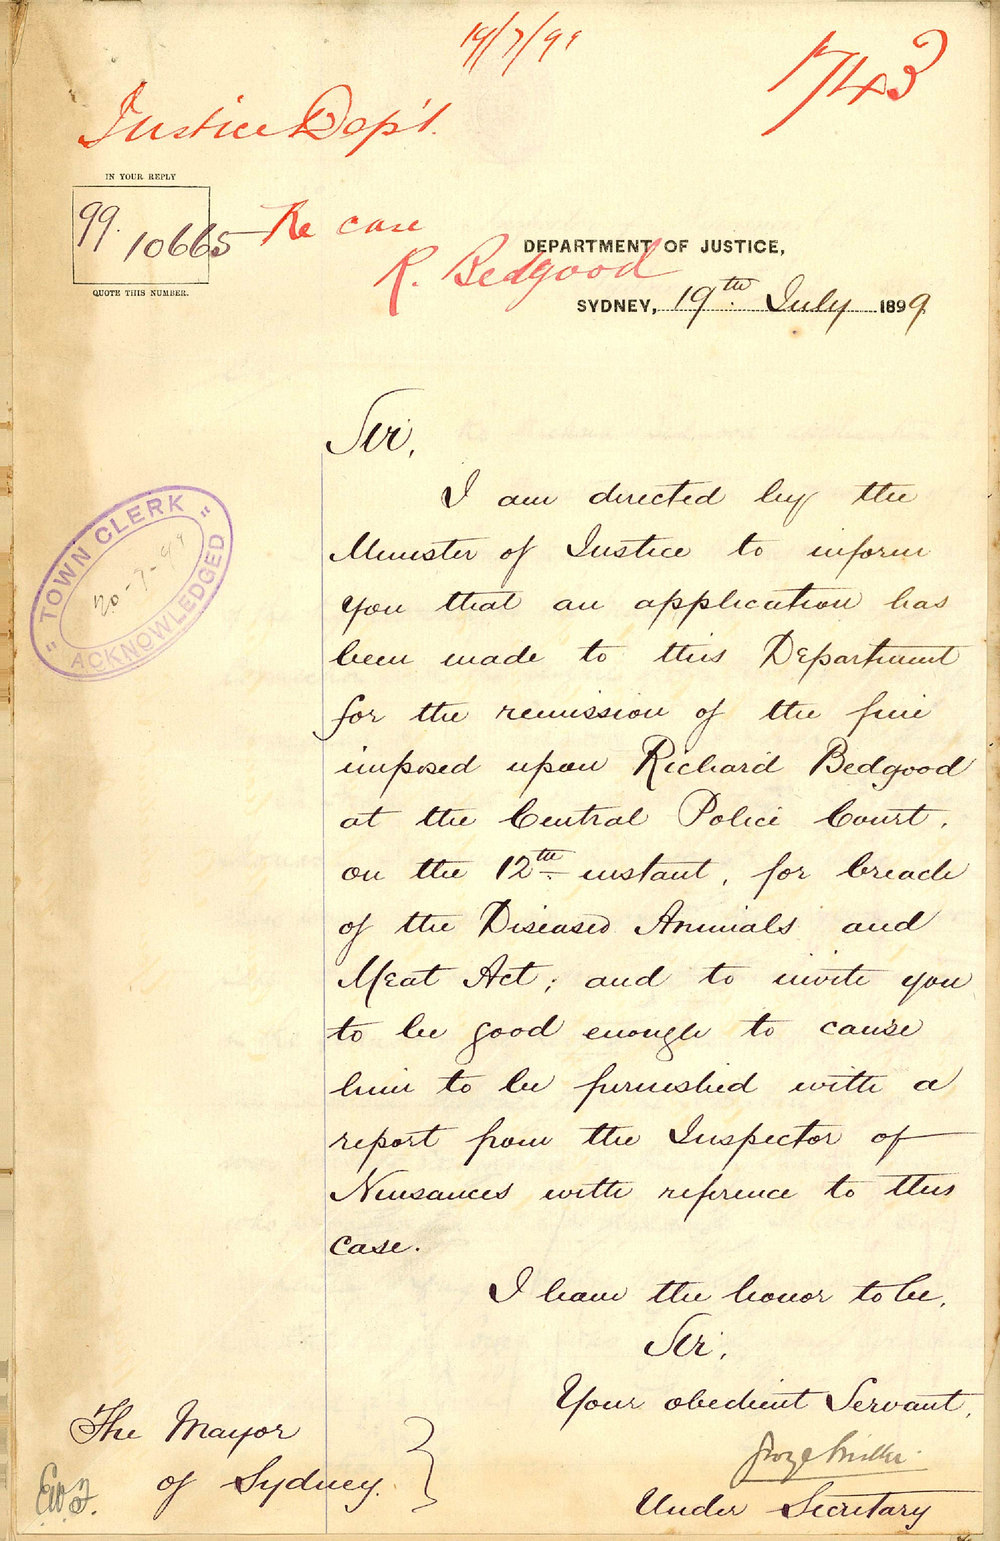 19/7/99
1743
Justice Dep't.
IN YOUR REPLY
99. 10665
QUOTE THIS NUMBER.
Re case
R. Bedgood
DEPARTMENT OF JUSTICE,
SYDNEY, 19th July 1899
Sir,
I am directed by the
Minister of Justice to inform
you that an application has
been made to this Department
for the remission of the fine
imposed upon Richard Bedgood
at the Central Police Court,
on the 12th instant, for breach
of the Diseased Animals and
Meat Act; and to invite you
to be good enough to cause
him to be furnished with a
report from the Inspector of
Nuisances with reference to this
case.
I have the honor to be,
Sir,
Your obedient Servant,
Under Secretary
The Mayor
of Sydney.
"TOWN CLERK"
20-7-99
ACKNOWLEDGED